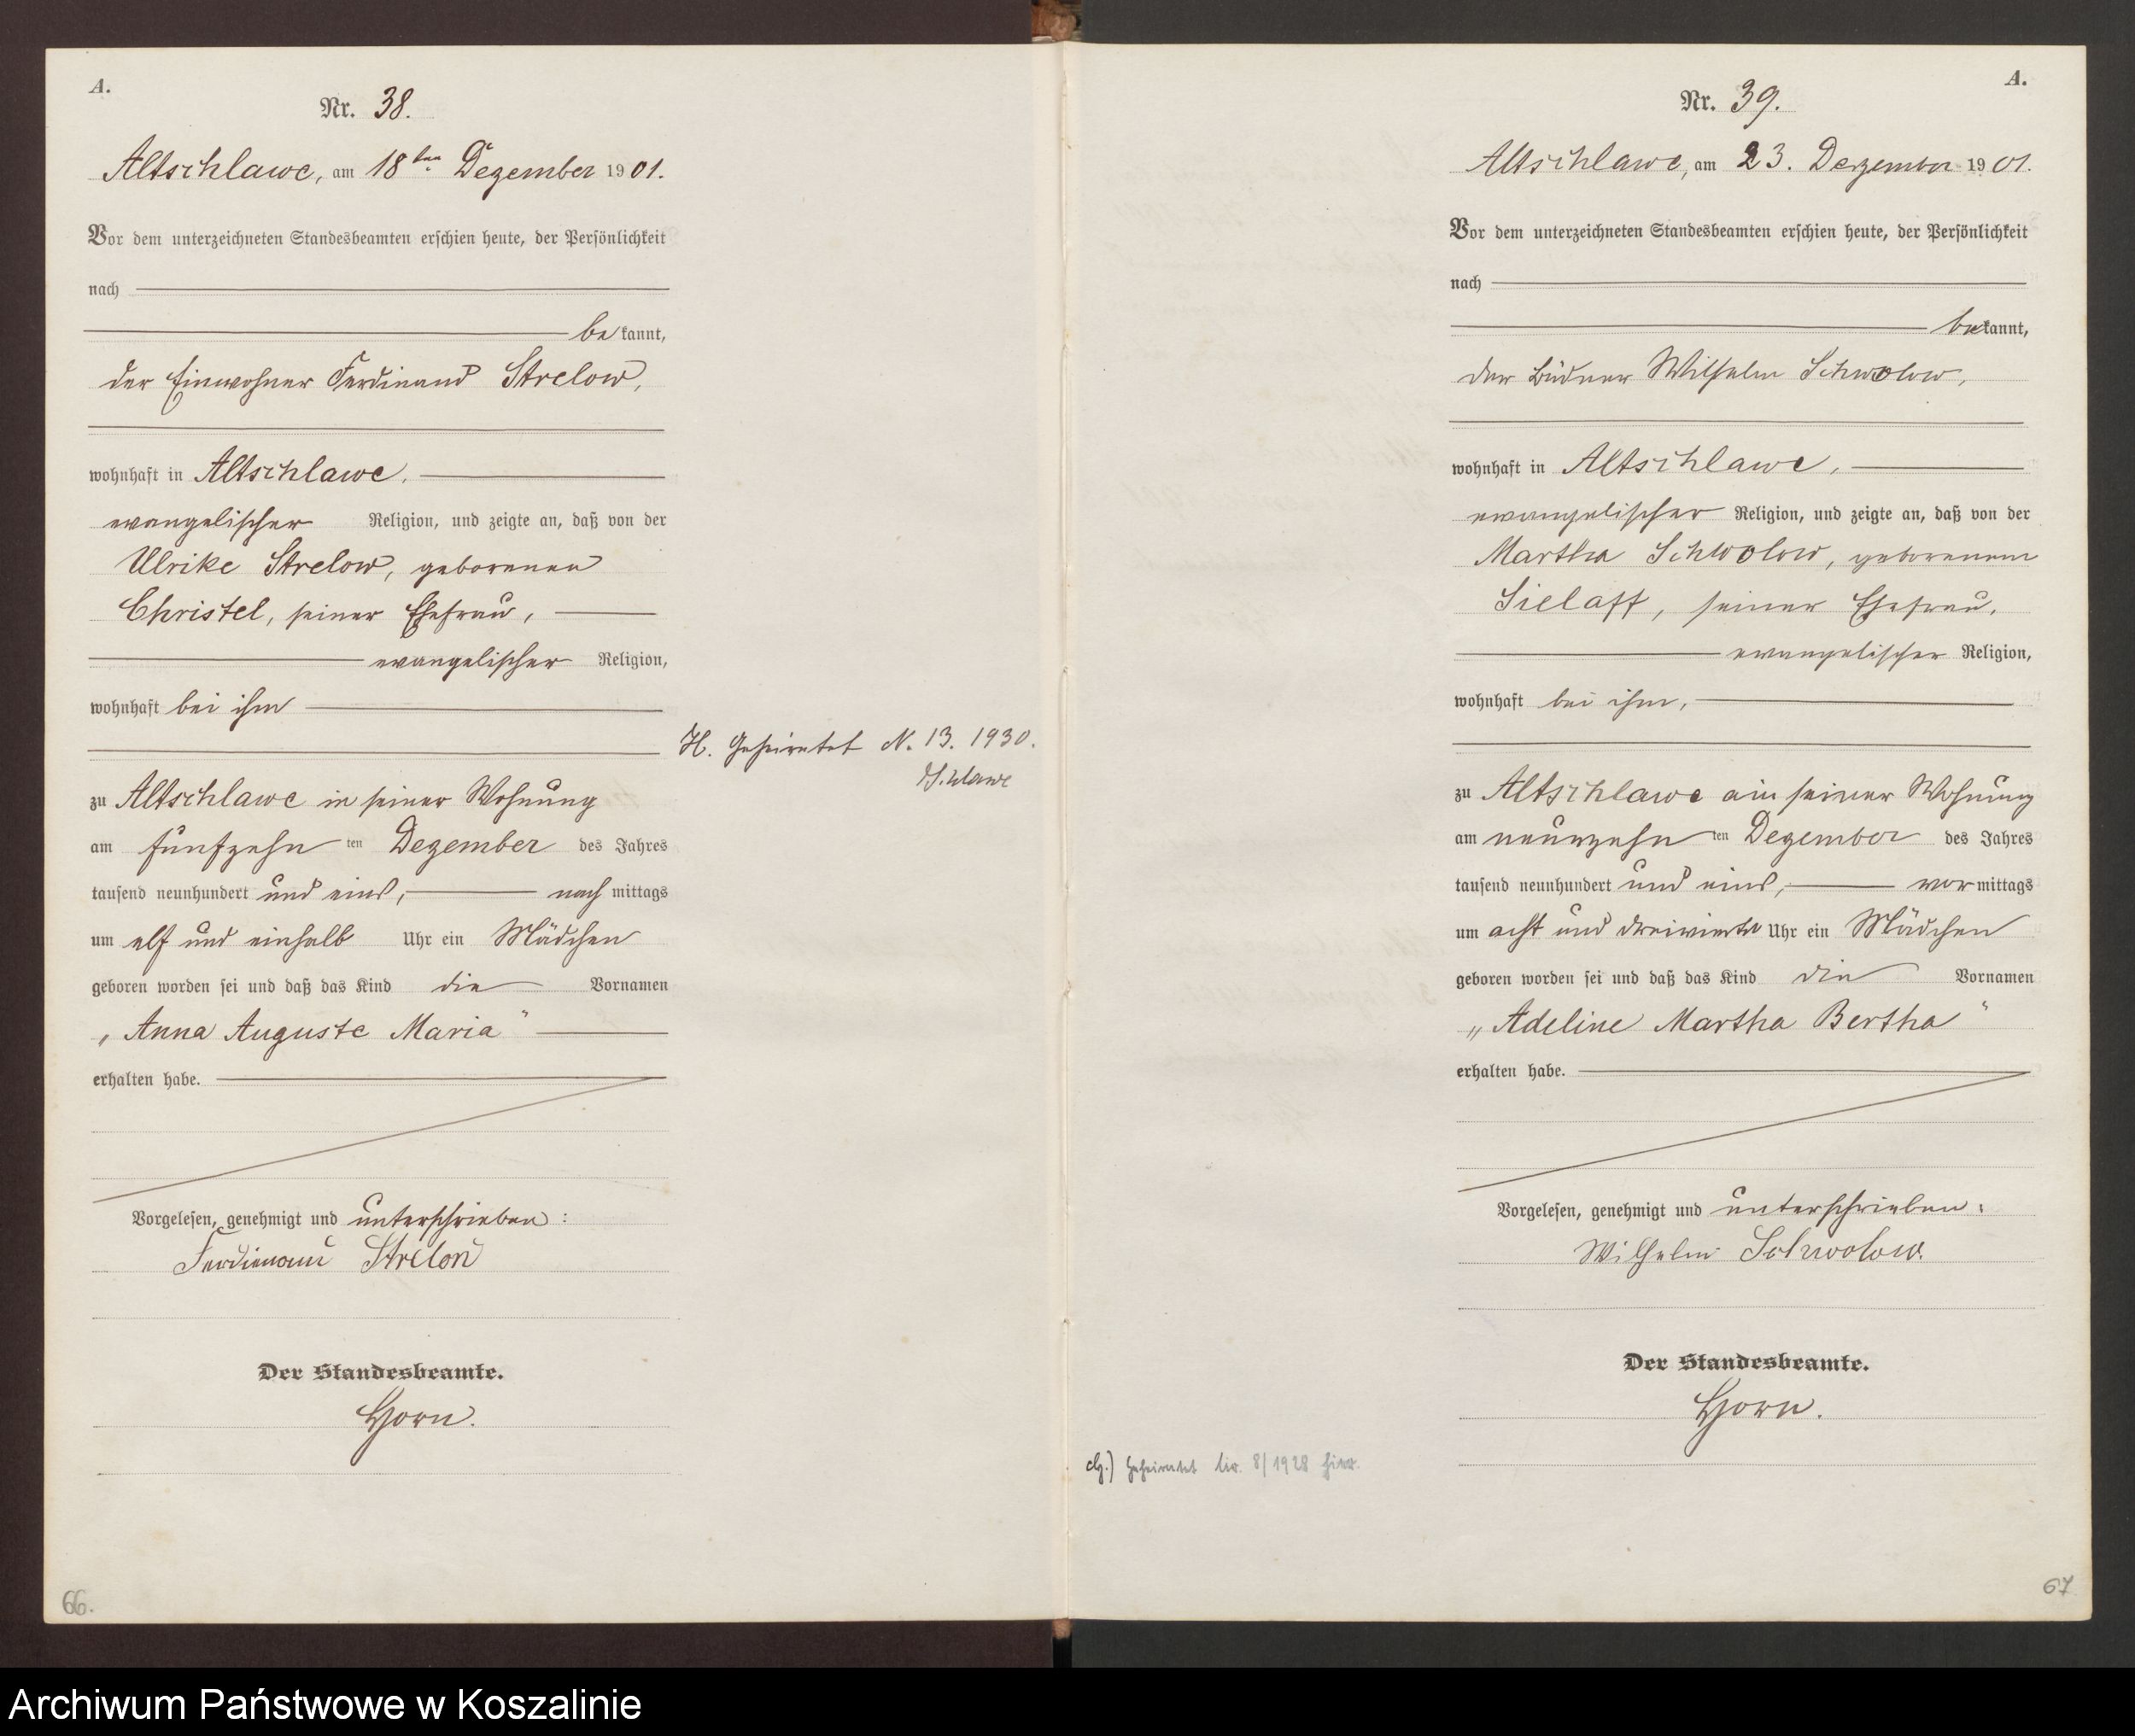 A.
Nr. 38.
Altschlawe, am 18ten Dezember 1901.
Vor dem unterzeichneten Standesbeamten erschien heute, der Persönlichkeit
nach
bekannt,
der Einwohner Ferdinand Strelow,
wohnhaft in Altschlawe,
evangelischer Religion, und zeigte an, daß von der
Ulrike Strelow, geborenen
Christel, seiner Ehefrau,
evangelischer Religion,
wohnhaft bei ihm
zu Altschlawe in seiner Wohnung
am fünfzehnten Dezember des Jahres
tausend neunhundert und eins, nachmittags
um elf und einhalb Uhr ein Mädchen
geboren worden sei und daß das Kind die Vornamen
„Anna Auguste Maria"
erhalten habe.
Vorgelesen, genehmigt und unterschrieben:
Ferdinand Strelow
Der Standesbeamte.
Horn.
66.
H. Geheiratet N. 13. 1930.
Schlawe
A.
Nr. 39.
Altschlawe, am 23. Dezember 1901.
Vor dem unterzeichneten Standesbeamten erschien heute, der Persönlichkeit
nach
bekannt,
der Büdner Wilhelm Schwolow,
wohnhaft in Altschlawe,
evangelischer Religion, und zeigte an, daß von der
Martha Schwolow, geborenen
Sielaff, seiner Ehefrau,
evangelischer Religion,
wohnhaft bei ihm,
zu Altschlawe in seiner Wohnung
am neunzehnten Dezember des Jahres
tausend neunhundert und eins, vormittags
um acht und dreiviertel Uhr ein Mädchen
geboren worden sei und daß das Kind die Vornamen
„Adeline Martha Bertha"
erhalten habe.
Vorgelesen, genehmigt und unterschrieben:
Wilhelm Schwolow.
Der Standesbeamte.
Horn.
Geheiratet 8/1928 hier.
67
Archiwum Państwowe w Koszalinie